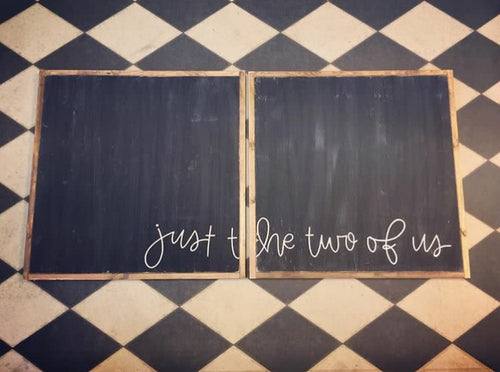 just the two of us